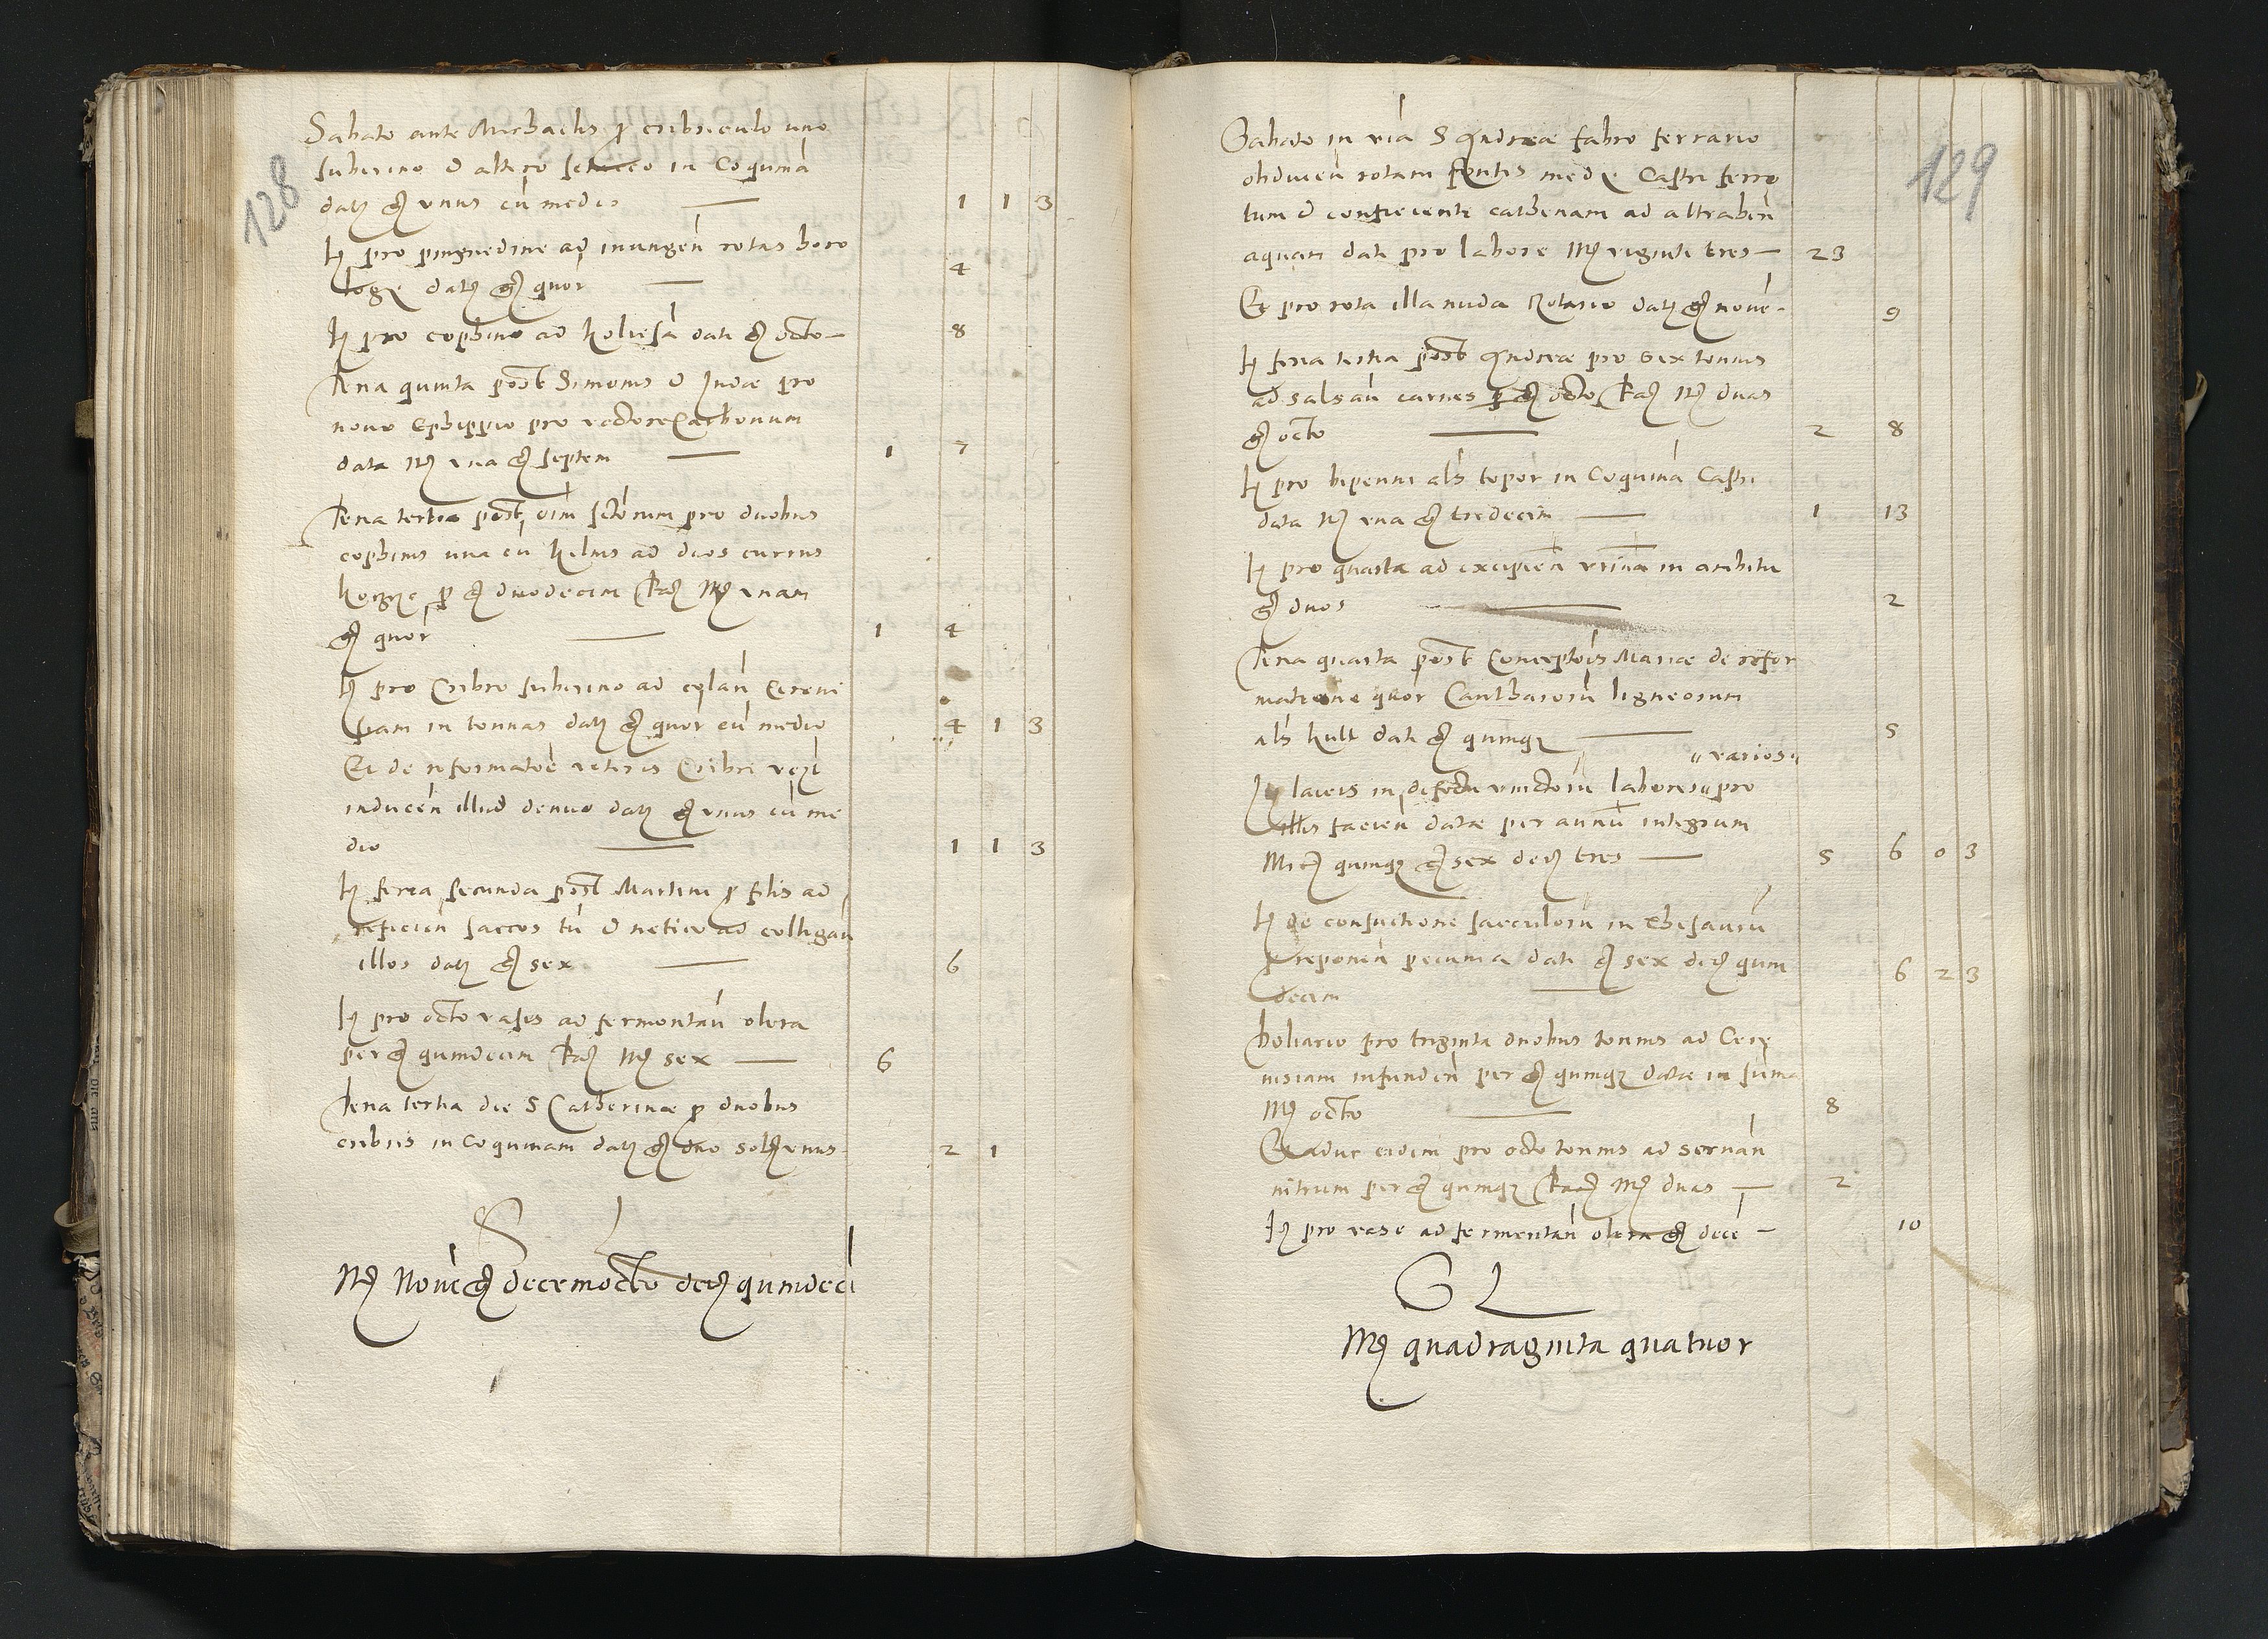 128
Sabato ante Michaelis p cribriculo uno
suberino & altero setaceo in Coquina
dat gr unus cu medio — 1 1 3
It pro pinguedine ad inungen rotas horo
logy dat gr quor — 4
It pro cophino ad koliesa dati gr octo — 8
Feria quinta post Simonis & Judae pro
novo Ephippio pro vectore Carbonum
data Mr una gr septem — 1 7
Feria tertia post oim sctorum pro duobus
cophinis una cu
p gr duodecim fac Mr unam
gr quor — 1 4
It pro Cribro suberino ad colan Cerevi
siam in tonnas dat gr quor cu medio 4 1 3
Et de reformatoe veteris Cribri
inducen illud denuo dat gr unus cu me
dio — 1 1 3
It feria secunda post Martini p filis ad
reficien saccos tu & ad colligan
illos dat gr sex — 6
It pro octo vasis ad fermentan olera
per gr quindecim fac Mr sex — 6
Feria tertia die S Catherinae p duobus
cribris in coquinam dat gr duo sol unus 2 1
Mr Nove gr decemocto den quindeci
129
Sabato in via S Andreae fabro ferrario
obducen rotam fontis med Castri ferra
tum & conficienti cathenam ad attrahen
aquam dati pro labore Mr viginti tres — 23
Et pro rota illa nuda Rotario dat gr nove - 9
It feria tertia post Andreae pro sex tonnis
ad salsan carnes p gr octo fac Mr duas
gr octo — 2 8
It pro bipenni als topor in Coquina Castri
data Mr una gr tredecim — 1 13
It pro quarta ad excipien urina in ambitu
gr duos — 2
Feria quarta post Conceptois Mariae de refor
matione quor Cantharoru ligneorum
als kult dati gr quinq — 5
" varios "
It laicis in defectu vinctoru labores " pro
illis facien datae per annu integrum
Mrc quinq gr sex den tres — 5 6 0 3
It de consuitione sacculoru in thesauru
p reponen pecunia dati gr sex den quin
decim — 6 2 3
Doliario pro triginta duobus tonnis ad Cere
visiam infunden per gr quinq datae in suma
Mr octo — 8
Et aduc eidem pro octo tonnis ad servan
nitrum per gr quinq fac Mr duas — 2
It pro vase ad fermentan olera gr dece — 10
Mr quadraginta quatuor